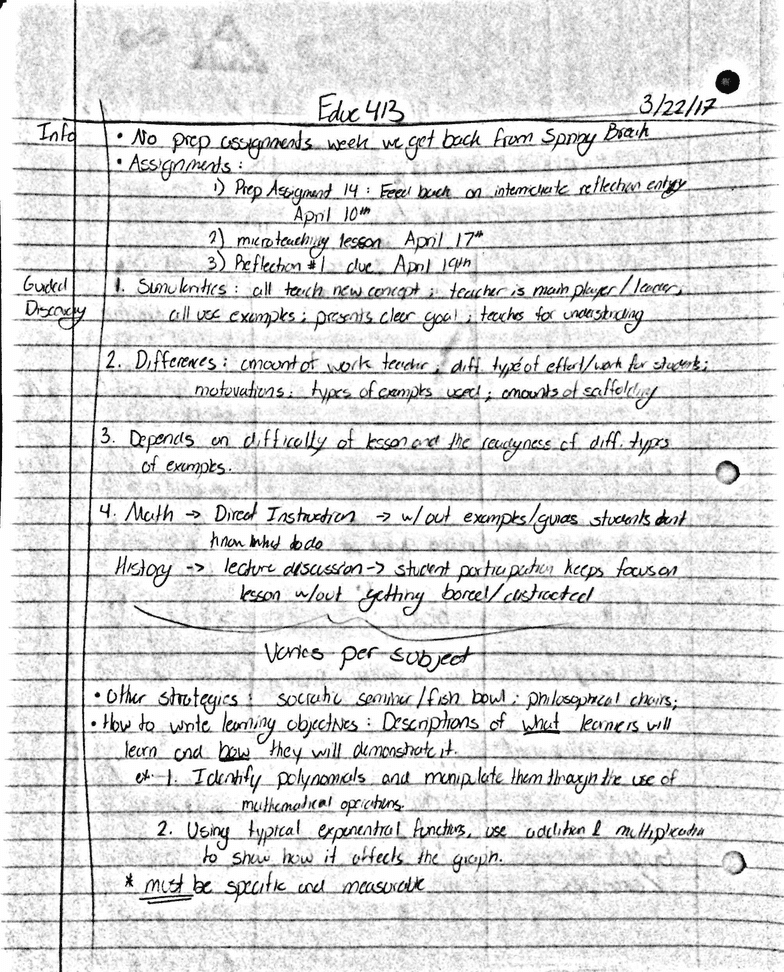 Educ 413 3/22/17
Info • No prep assignments week we get back from Spring Break
• Assignments:
1) Prep Assignment 14: Feed back on intermediate reflection entry
April 10th
2) microteaching lesson April 17th
3) Reflection #1 due April 19th
Guided 1. Similarities: all teach new concept; teacher is main player/leader;
Discovery all use examples; presents clear goal; teaches for understanding
2. Differences: amount of work teacher; diff type of effort/work for students;
motovations; types of examples used; amounts of scaffolding
3. Depends on difficulty of lesson and the readyness of diff. types
of examples.
4. Math → Direct Instruction → w/out examples/guides students dont
know what to do
History -> lecture discussion -> student participation keeps focus on
lesson w/out getting bored/distracted
Varies per subject
• Other strategies: socratic seminar/fish bowl; philosophical chairs;
• How to write learning objectives: Descriptions of what learners will
learn and how they will demonstrate it.
ex. 1. Identify polynomials and manipulate them through the use of
mathematical operations.
2. Using typical exponential functions, use addition & multiplication
to show how it affects the graph.
* must be specific and measurable